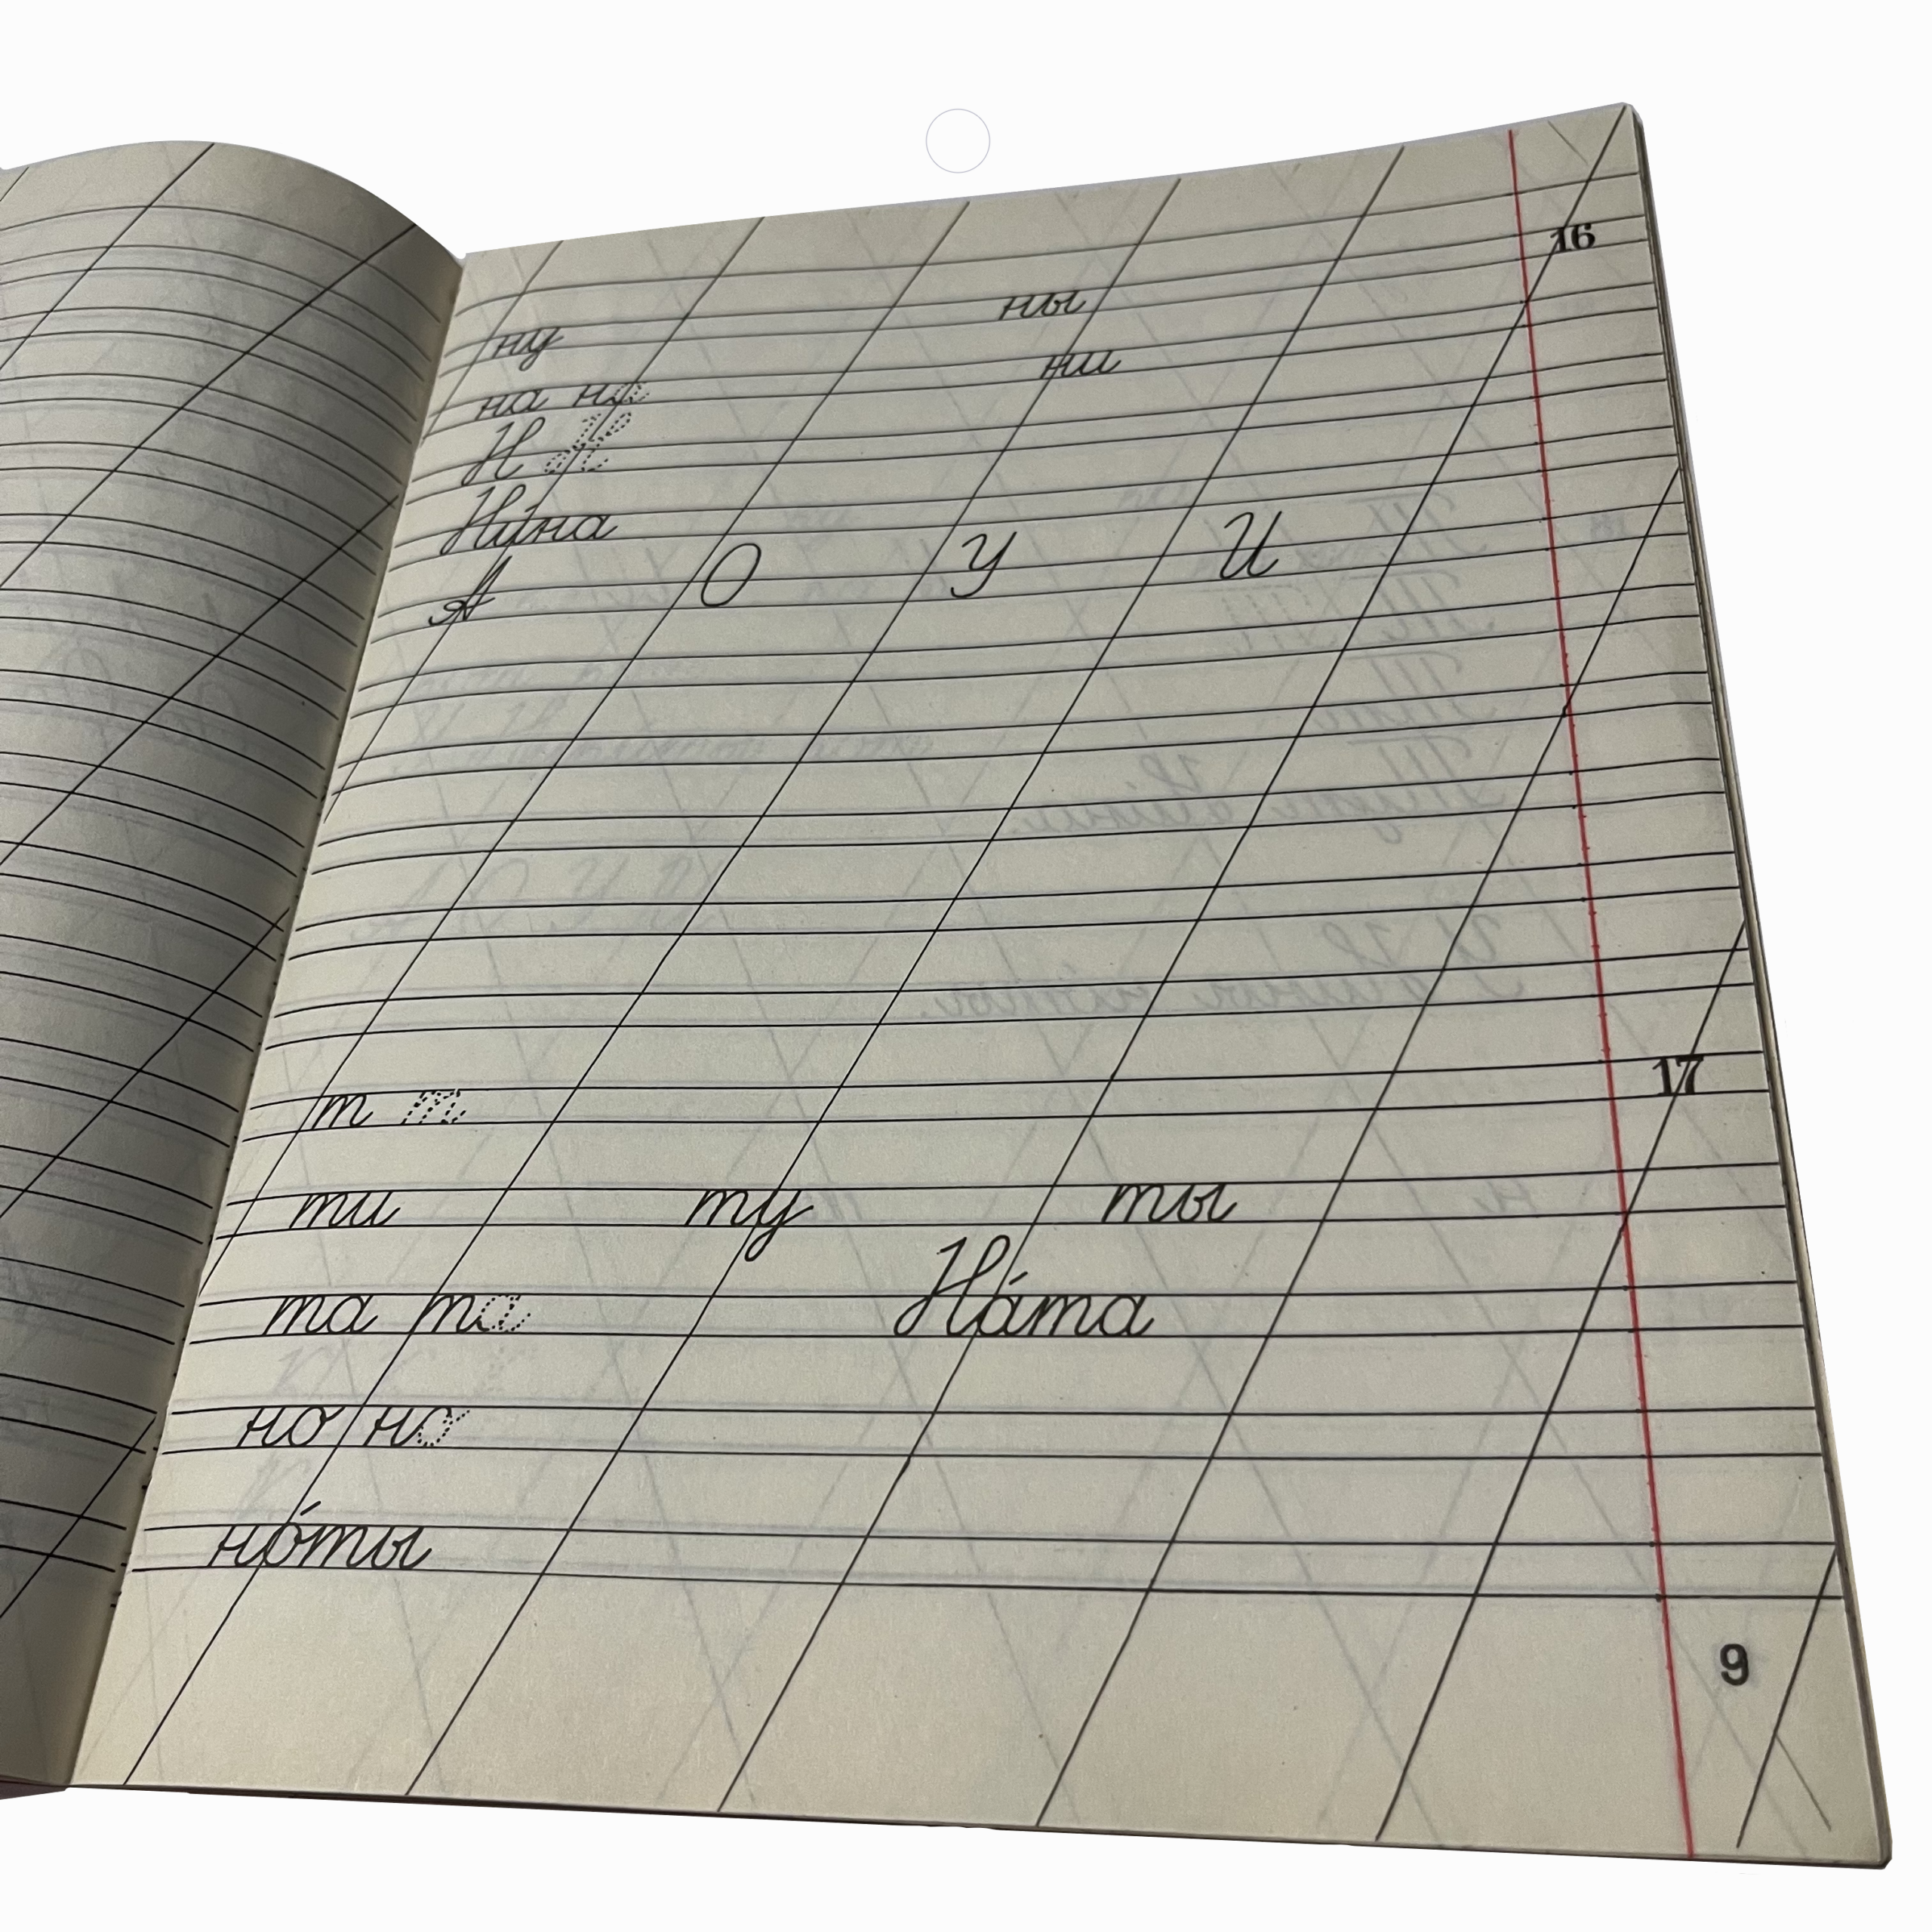 16
ну ны
на на ни
Н Н
Ни́на
А О У И
17
т т
ти ту ты
та та На́та
но но
но́ты
9